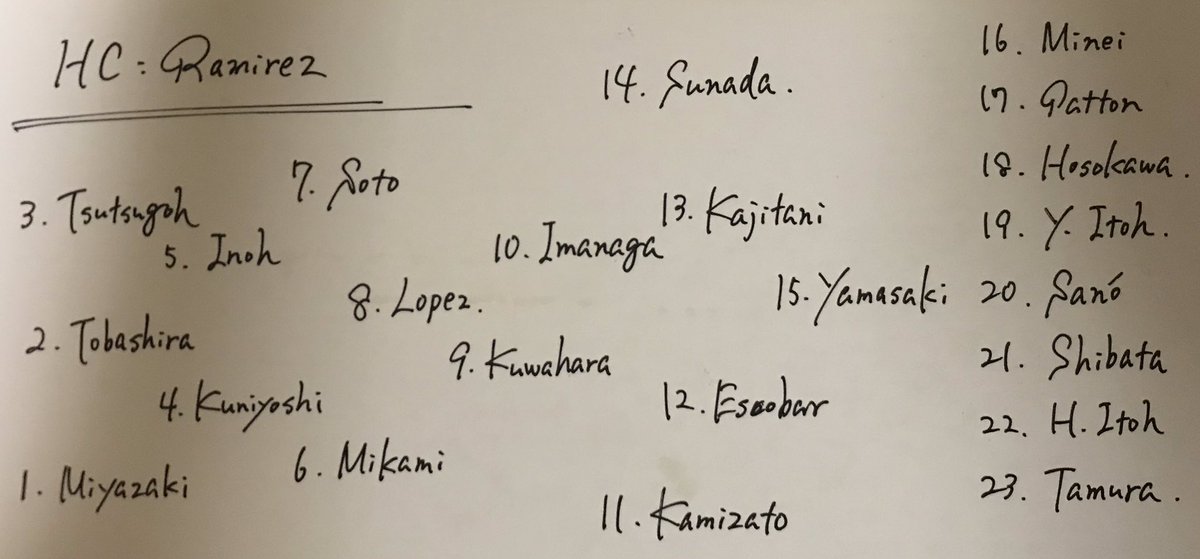 HC: Ramirez
1. Miyazaki
2. Tobashira
3. Tsutsugoh
4. Kuniyoshi
5. Inoh
6. Mikami
7. Soto
8. Lopez.
9. Kuwahara
10. Imanaga
11. Kamizato
12. Escobar
13. Kajitani
14. Sunada.
15. Yamasaki
16. Minei
17. Patton
18. Hosokawa.
19. Y. Itoh.
20. Sanó
21. Shibata
22. H. Itoh
23. Tamura.